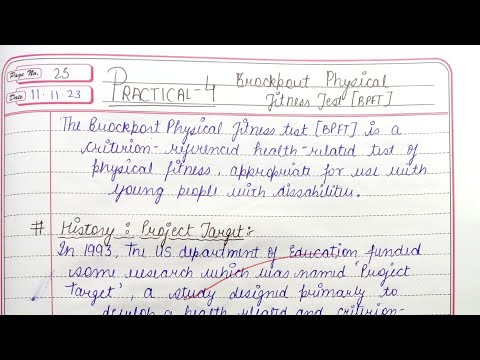 Page No. 25
Date 11.11.23
PRACTICAL-4
Brockport Physical
Fitness Test [BPFT]
The Brockport Physical Fitness test [BPFT] is a
criterion-referenced health-related test of
physical fitness, appropriate for use with
young people with dissabilities.
# History : Project Target:-
In 1993, The US department of Education funded
some research which was named 'Project
Target', a study designed primarily to
develop a health related and criterion-